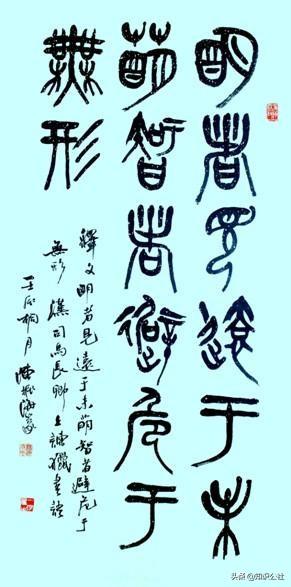 明者見遠于未
萌智者避危于
無形
釋文明者見遠于未萌智者避危于
無形 漢司馬長卿上諫獵書語
桐月
头条 @知识公社